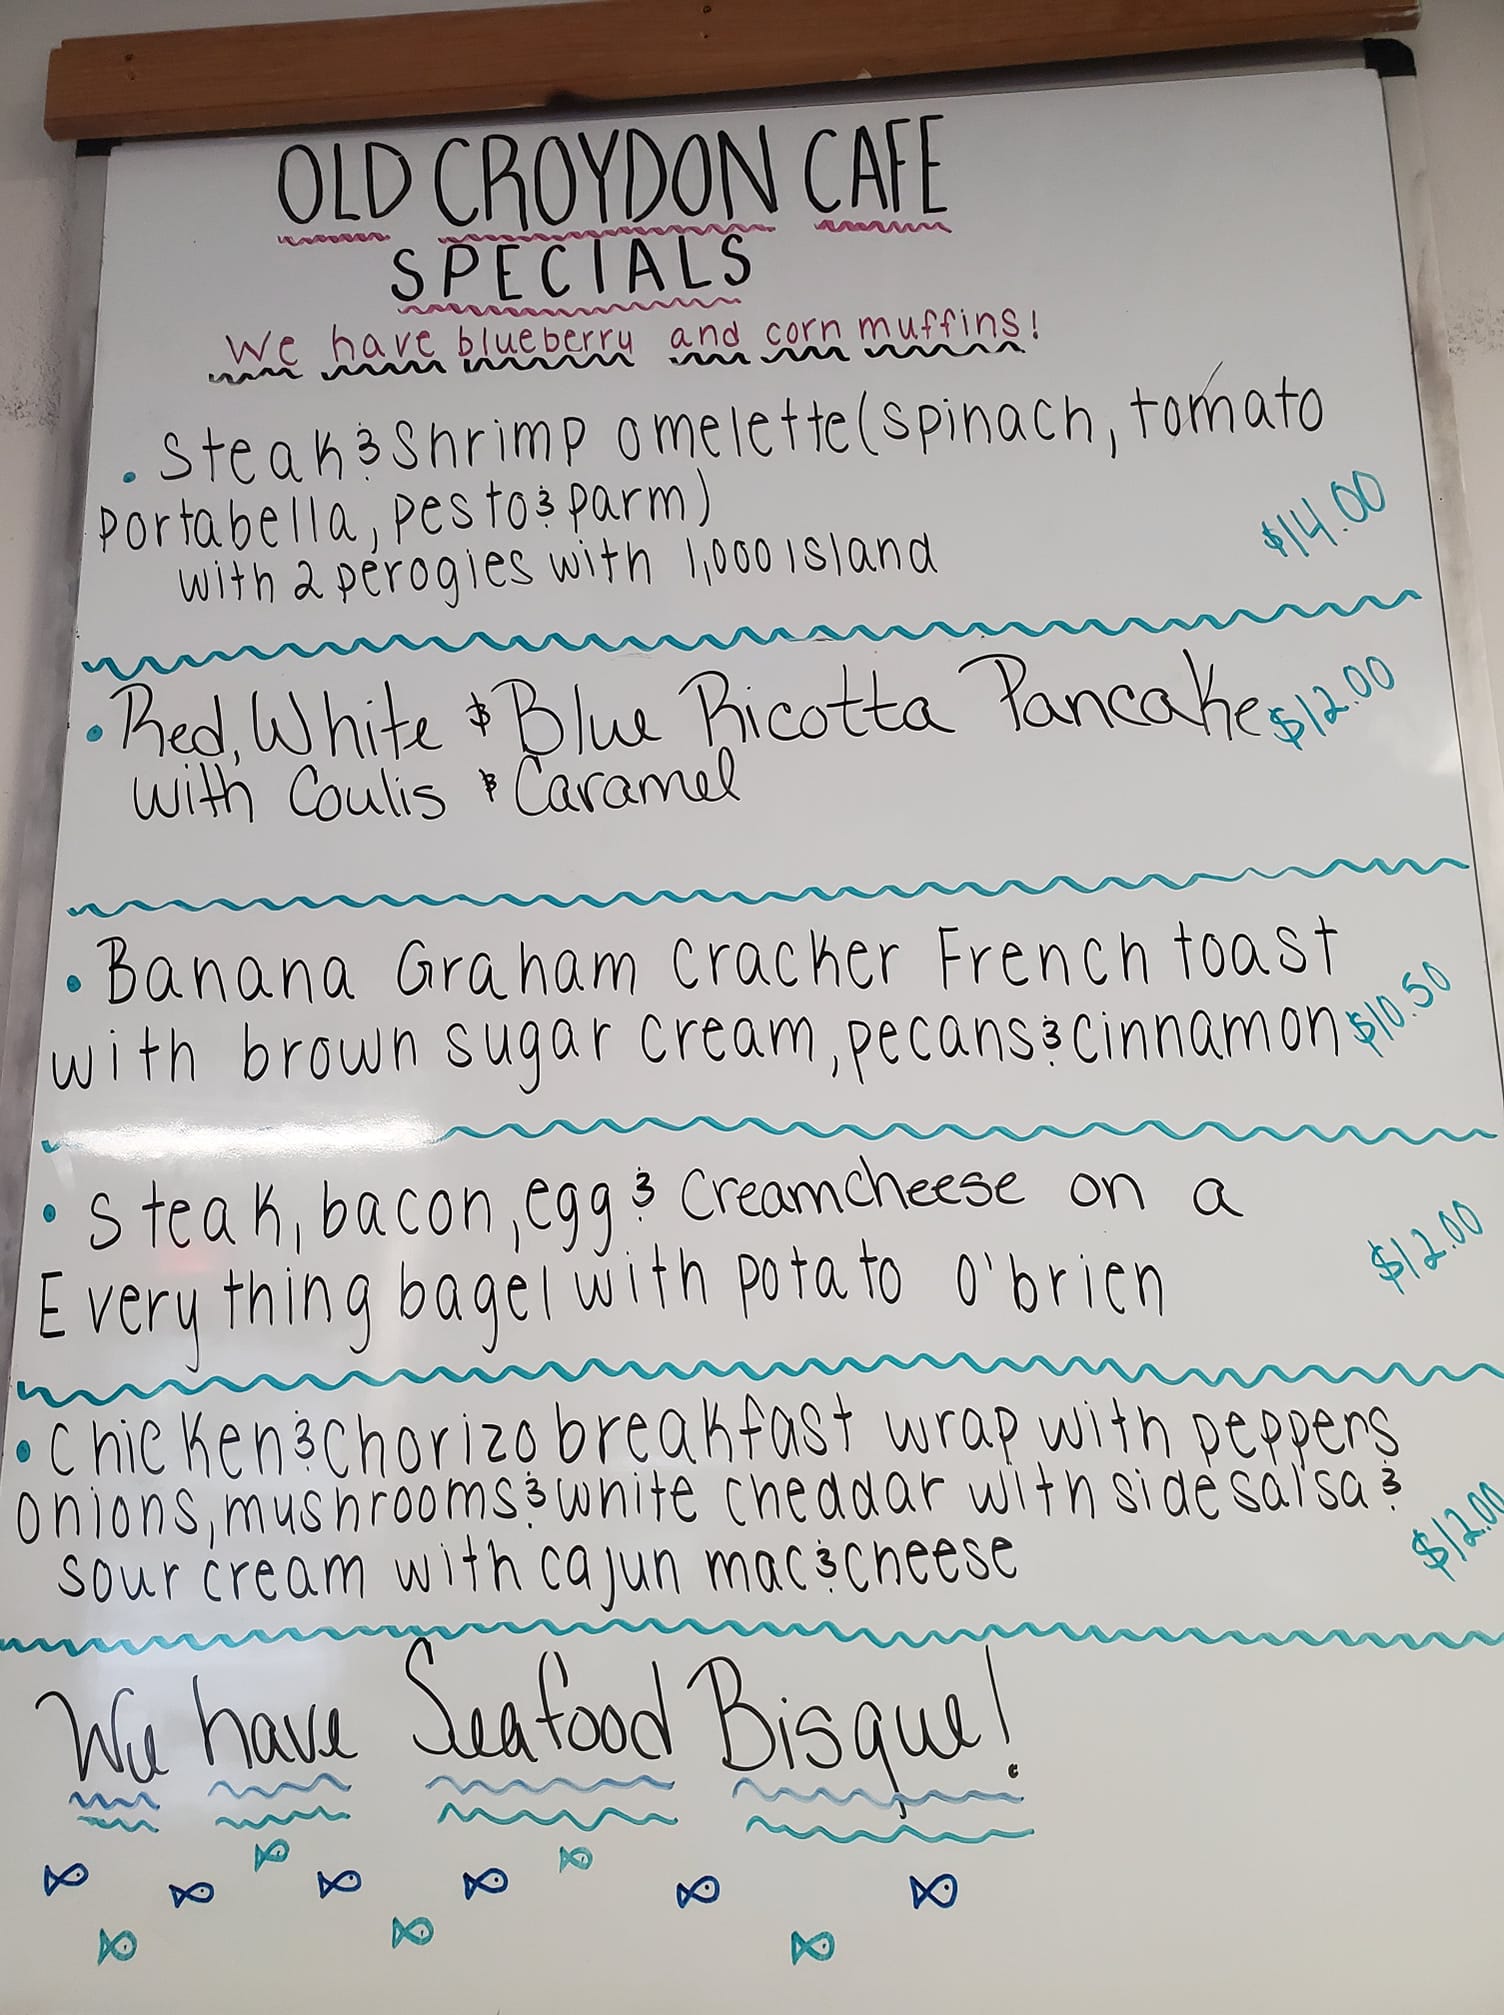 OLD CROYDON CAFE
SPECIALS
We have blueberry and corn muffins!
• Steak & Shrimp omelette (spinach, tomato
portabella, pesto & parm)
with 2 perogies with 1,000 island
$14.00
• Red, White & Blue Ricotta Pancake $12.00
with Coulis & Caramel
• Banana Graham cracker French toast
with brown sugar cream, pecans & cinnamon $10.50
• Steak, bacon, egg & Creamcheese on a
Everything bagel with potato o'brien
$12.00
• Chicken & chorizo breakfast wrap with peppers
onions, mushrooms & white cheddar with side salsa &
sour cream with cajun mac & cheese
$12.00
We have Seafood Bisque!